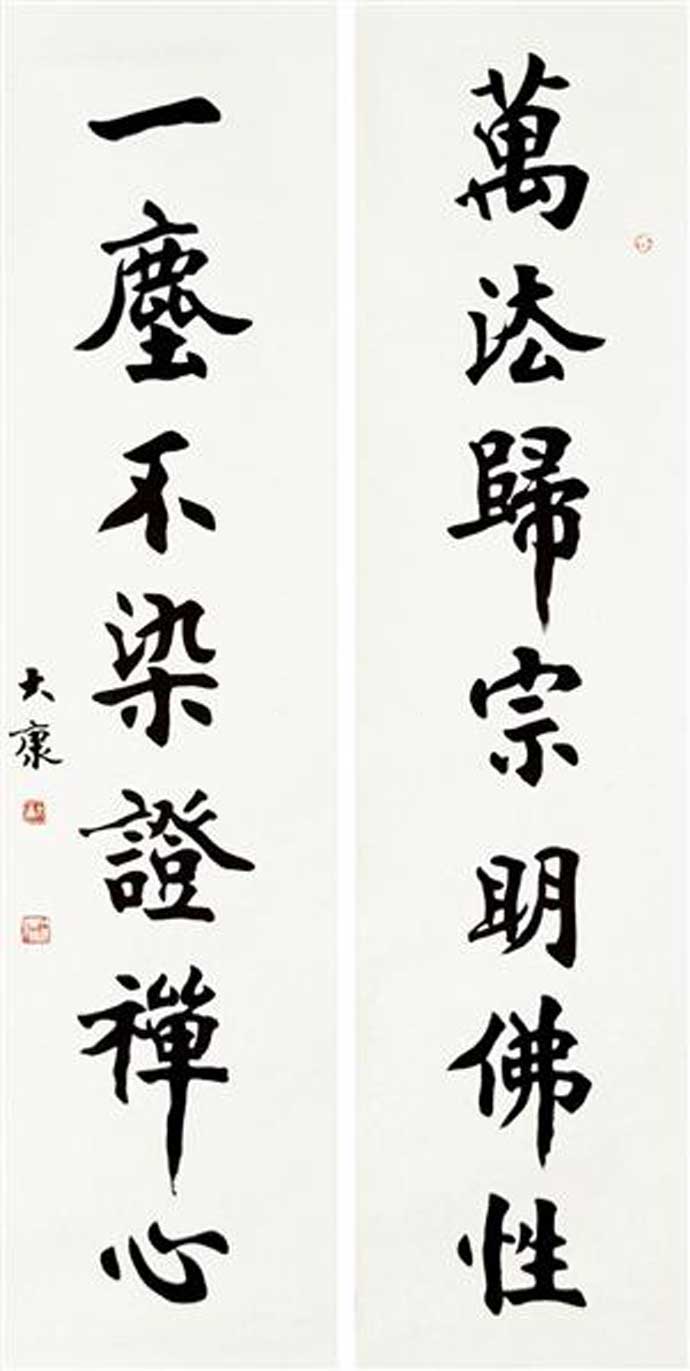 萬法歸宗明佛性
一塵不染證禪心
大康